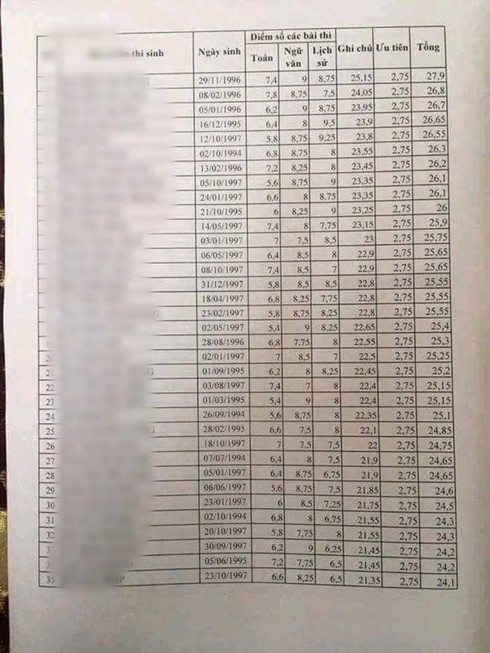 Điểm số các bài thi
thí sinh Ngày sinh Toán Ngữ văn Lịch sử Ghi chú Ưu tiên Tổng
29/11/1996 7,4 9 8,75 25,15 2,75 27,9
08/02/1996 7,8 8,75 7,5 24,05 2,75 26,8
05/01/1996 6,2 9 8,75 23,95 2,75 26,7
16/12/1995 6,4 8 9,5 23,9 2,75 26,65
12/10/1997 5,8 8,75 9,25 23,8 2,75 26,55
02/10/1994 6,8 8,75 8 23,55 2,75 26,3
13/02/1996 7,2 8,25 8 23,45 2,75 26,2
05/10/1997 5,6 8,75 9 23,35 2,75 26,1
24/01/1997 6,6 8 8,75 23,35 2,75 26,1
21/10/1995 6 8,25 9 23,25 2,75 26
14/05/1997 7,4 8 7,75 23,15 2,75 25,9
03/01/1997 7 7,5 8,5 23 2,75 25,75
06/05/1997 6,4 8,5 8 22,9 2,75 25,65
08/10/1997 7,4 8,5 7 22,9 2,75 25,65
31/12/1997 5,8 8,5 8,5 22,8 2,75 25,55
18/04/1997 6,8 8,25 7,75 22,8 2,75 25,55
23/02/1997 5,8 8,75 8,25 22,8 2,75 25,55
02/05/1997 5,4 9 8,25 22,65 2,75 25,4
28/08/1996 6,8 7,75 8 22,55 2,75 25,3
02/01/1997 7 8,5 7 22,5 2,75 25,25
01/09/1995 6,2 8 8,25 22,45 2,75 25,2
22 03/08/1997 7,4 7 8 22,4 2,75 25,15
23 01/03/1995 5,4 9 8 22,4 2,75 25,15
24 26/09/1994 5,6 8,75 8 22,35 2,75 25,1
25 28/02/1995 6,6 7,5 8 22,1 2,75 24,85
26 18/10/1997 7 7,5 7,5 22 2,75 24,75
27 07/07/1994 6,4 8 7,5 21,9 2,75 24,65
28 05/01/1997 6,4 8,75 6,75 21,9 2,75 24,65
29 06/06/1997 5,6 8,75 7,5 21,85 2,75 24,6
30 23/01/1997 6 8,5 7,25 21,75 2,75 24,5
31 02/10/1994 6,8 8 6,75 21,55 2,75 24,3
32 20/10/1997 5,8 7,75 8 21,55 2,75 24,3
30/09/1997 6,2 9 6,25 21,45 2,75 24,2
05/06/1995 7,2 7,75 6,5 21,45 2,75 24,2
35 23/10/1997 6,6 8,25 6,5 21,35 2,75 24,1